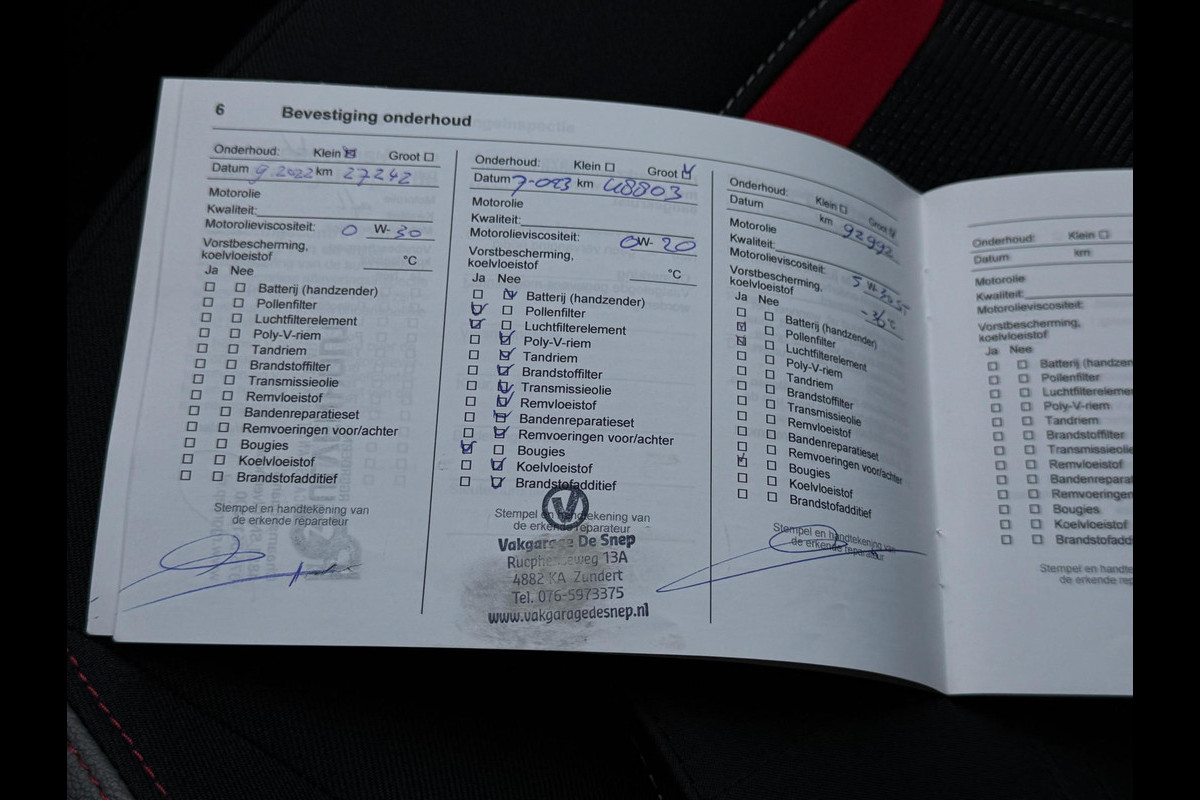 6 Bevestiging onderhoud
Onderhoud: Klein Groot
Datum 9.2022 km 27242
Motorolie
Kwaliteit:
Motorolieviscositeit: 0 W-30
Vorstbescherming,
koelvloeistof °C
Ja Nee
Batterij (handzender)
Pollenfilter
Luchtfilterelement
Poly-V-riem
Tandriem
Brandstoffilter
Transmissieolie
Remvloeistof
Bandenreparatieset
Remvoeringen voor/achter
Bougies
Koelvloeistof
Brandstofadditief
Stempel en handtekening van
de erkende reparateur
Onderhoud: Klein Groot
Datum km 48803
Motorolie
Kwaliteit:
Motorolieviscositeit: 0W-20
Vorstbescherming,
koelvloeistof °C
Ja Nee
Batterij (handzender)
Pollenfilter
Luchtfilterelement
Poly-V-riem
Tandriem
Brandstoffilter
Transmissieolie
Remvloeistof
Bandenreparatieset
Remvoeringen voor/achter
Bougies
Koelvloeistof
Brandstofadditief
Stempel en handtekening van
de erkende reparateur
V
Vakgarage De Snep
13A
4882 KA Zundert
Tel. 076-5973375
www.vakgaragedesnep.nl
Onderhoud: Klein Groot
Datum km 92992
Motorolie
Kwaliteit:
Motorolieviscositeit: 5 W-30
Vorstbescherming,
koelvloeistof
Ja Nee
Batterij (handzender)
Pollenfilter
Luchtfilterelement
Poly-V-riem
Tandriem
Brandstoffilter
Transmissieolie
Remvloeistof
Bandenreparatieset
Remvoeringen voor/achter
Bougies
Koelvloeistof
Brandstofadditief
Stempel en handtekening van
de erkende reparateur
Onderhoud: Klein
Datum km
Motorolie
Kwaliteit:
Motorolieviscositeit:
Vorstbescherming,
koelvloeistof
Ja Nee
Batterij (handzen
Pollenfilter
Luchtfilterelemen
Poly-V-riem
Tandriem
Brandstoffilter
Transmissieolie
Remvloeistof
Bandenrepara
Remvoeringen
Bougies
Koelvloeistof
Brandstofaddi
Stempel en hand
de erkende rep